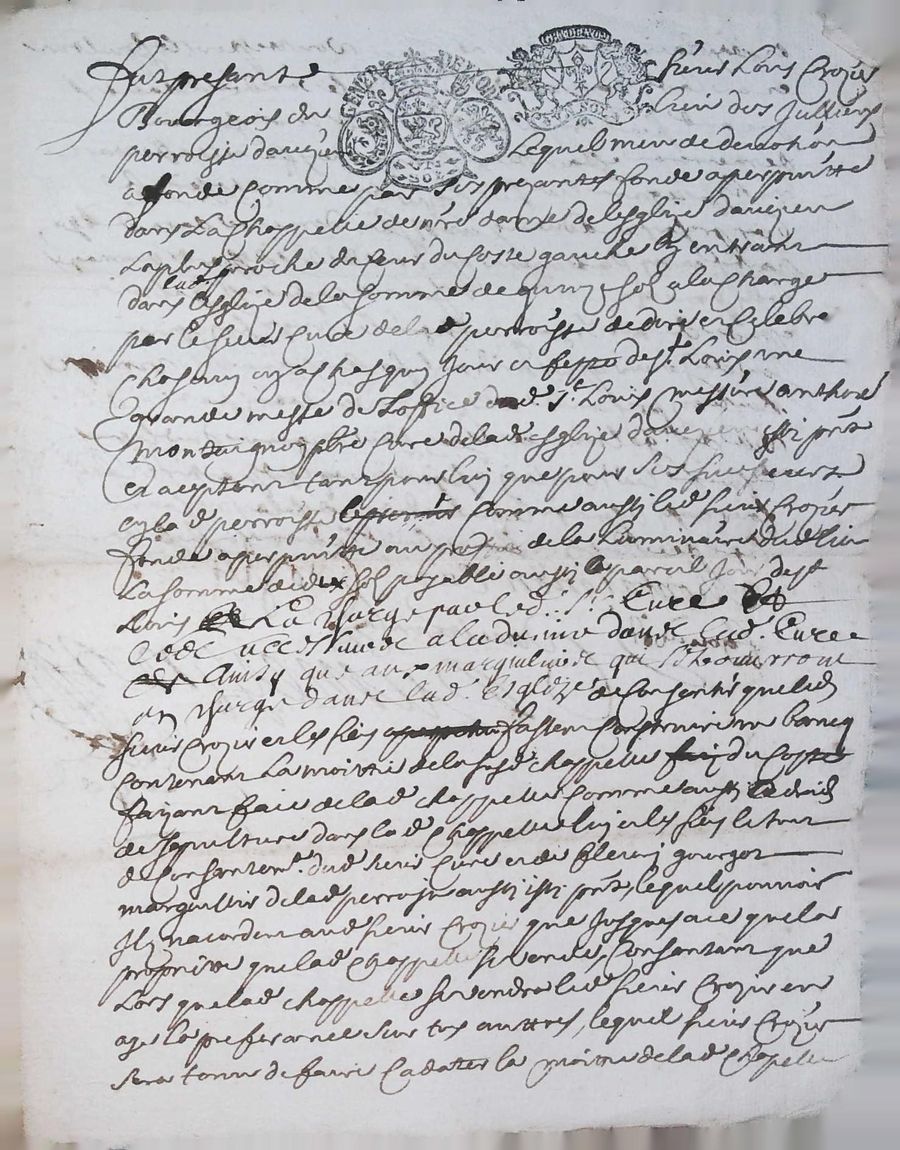 fut presant sieur Louis Croizier
Bourgeois du lieu des Julliens
perroisse daveizieu Lequel meu de devotion
a fonde comme par ses presantes fonde a perpetuitte
dans La Chappelle de nre dame de lesglize daveizieu
La plus proche du Ceur du Coste gauche En entrant
dans lad esglize de la somme de quinze sol a la Charge
par le sieur Cure de lad perroisse de dire et Celebre
chascun an a chasque Jour et feste de st Louis une
grande messe de Loffice dud. st Louis messire anthoine
pbre Cure de lad esglize daveizieu issi pnt
et aceptant tant pour luy que pour ses successeurs
en lad perroisse comme aussy led sieur Croizier
fonde a perpetuitte au de la Luminaire dud lieu
La somme de dix sol payable aussy le pareil Jour de st
Louis La charge par led. sr. Cure
successeurs a la dans lad. Cure
Ainsy que aux marguilliers qui se trouverront
en charge dans lad. Esglize de Consentir que led
sieur Croizier et les siens fassent Construire un bancq
Contenant La moittie de la susd chappelle du Coste
faizant face de lad chappelle comme aussy le droit
de sepulture dans lad Chappelle luy et les siens le tout
du Consantemt. dud sieur Cure et de fleury gourgot
marguillier de lad perroisse aussy issi pnt lequel pouvoir
Ils nacordent aud sieur Croizier que Jusques a ce que la
propriete que lad Chappelle se vende, Consantant que
Lors que lad chappelle se vendra led sieur Croizier en
aye la preferance sur tous auttres, lequel sieur Croizier
sera tenu de faire Cadater la moittie de lad Chapelle